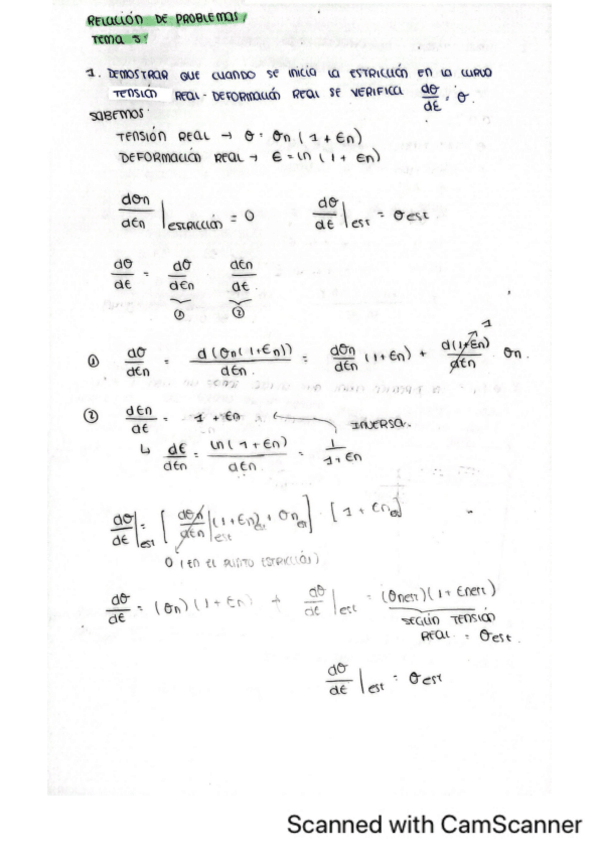 RELACIÓN DE PROBLEMAS/
TEMA 3:
1. DEMOSTRAR QUE CUANDO SE INICIA LA ESTRICCIÓN EN LA CURVA
TENSIÓN REAL - DEFORMACIÓN REAL SE VERIFICA dσ/dε = σ.
SABEMOS:
TENSIÓN REAL → σ = σn (1 + εn)
DEFORMACIÓN REAL → ε = ln (1 + εn)
dσn/dεn |ESTRICCIÓN = 0 dσ/dε |est = σest
dσ/dε = dσ/dεn dεn/dε
① ②
① dσ/dεn = d(σn(1+εn))/dεn = dσn/dεn (1+εn) + d(1+εn)/dεn σn. 1
② dεn/dε = 1 + εn ← INVERSA.
↳ dε/dεn = ln(1+εn)/dεn = 1/1+εn
dσ/dε |est = [dσn/dεn |est (1+εn) + σn] · [1 + εn]
0 (EN EL PUNTO ESTRICCIÓN)
dσ/dε = (σn)(1+εn) → dσ/dε |est = (σnest)(1+εnest)
SEGÚN TENSIÓN
REAL = σest.
dσ/dε |est = σest
Scanned with CamScanner